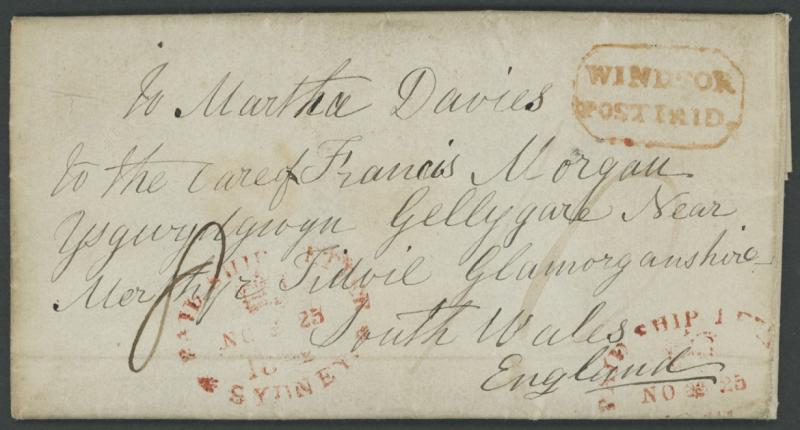 WINDSOR
POST PAID
To Martha Davies
to the Care of Francis Morgan
Ysgwydgwyn Gellygare Near
Merthyr Tidvil Glamorganshire
South Wales
England
8
PAID SHIP LETTER
NO 25
18
SYDNEY
PAID SHIP
NO 25